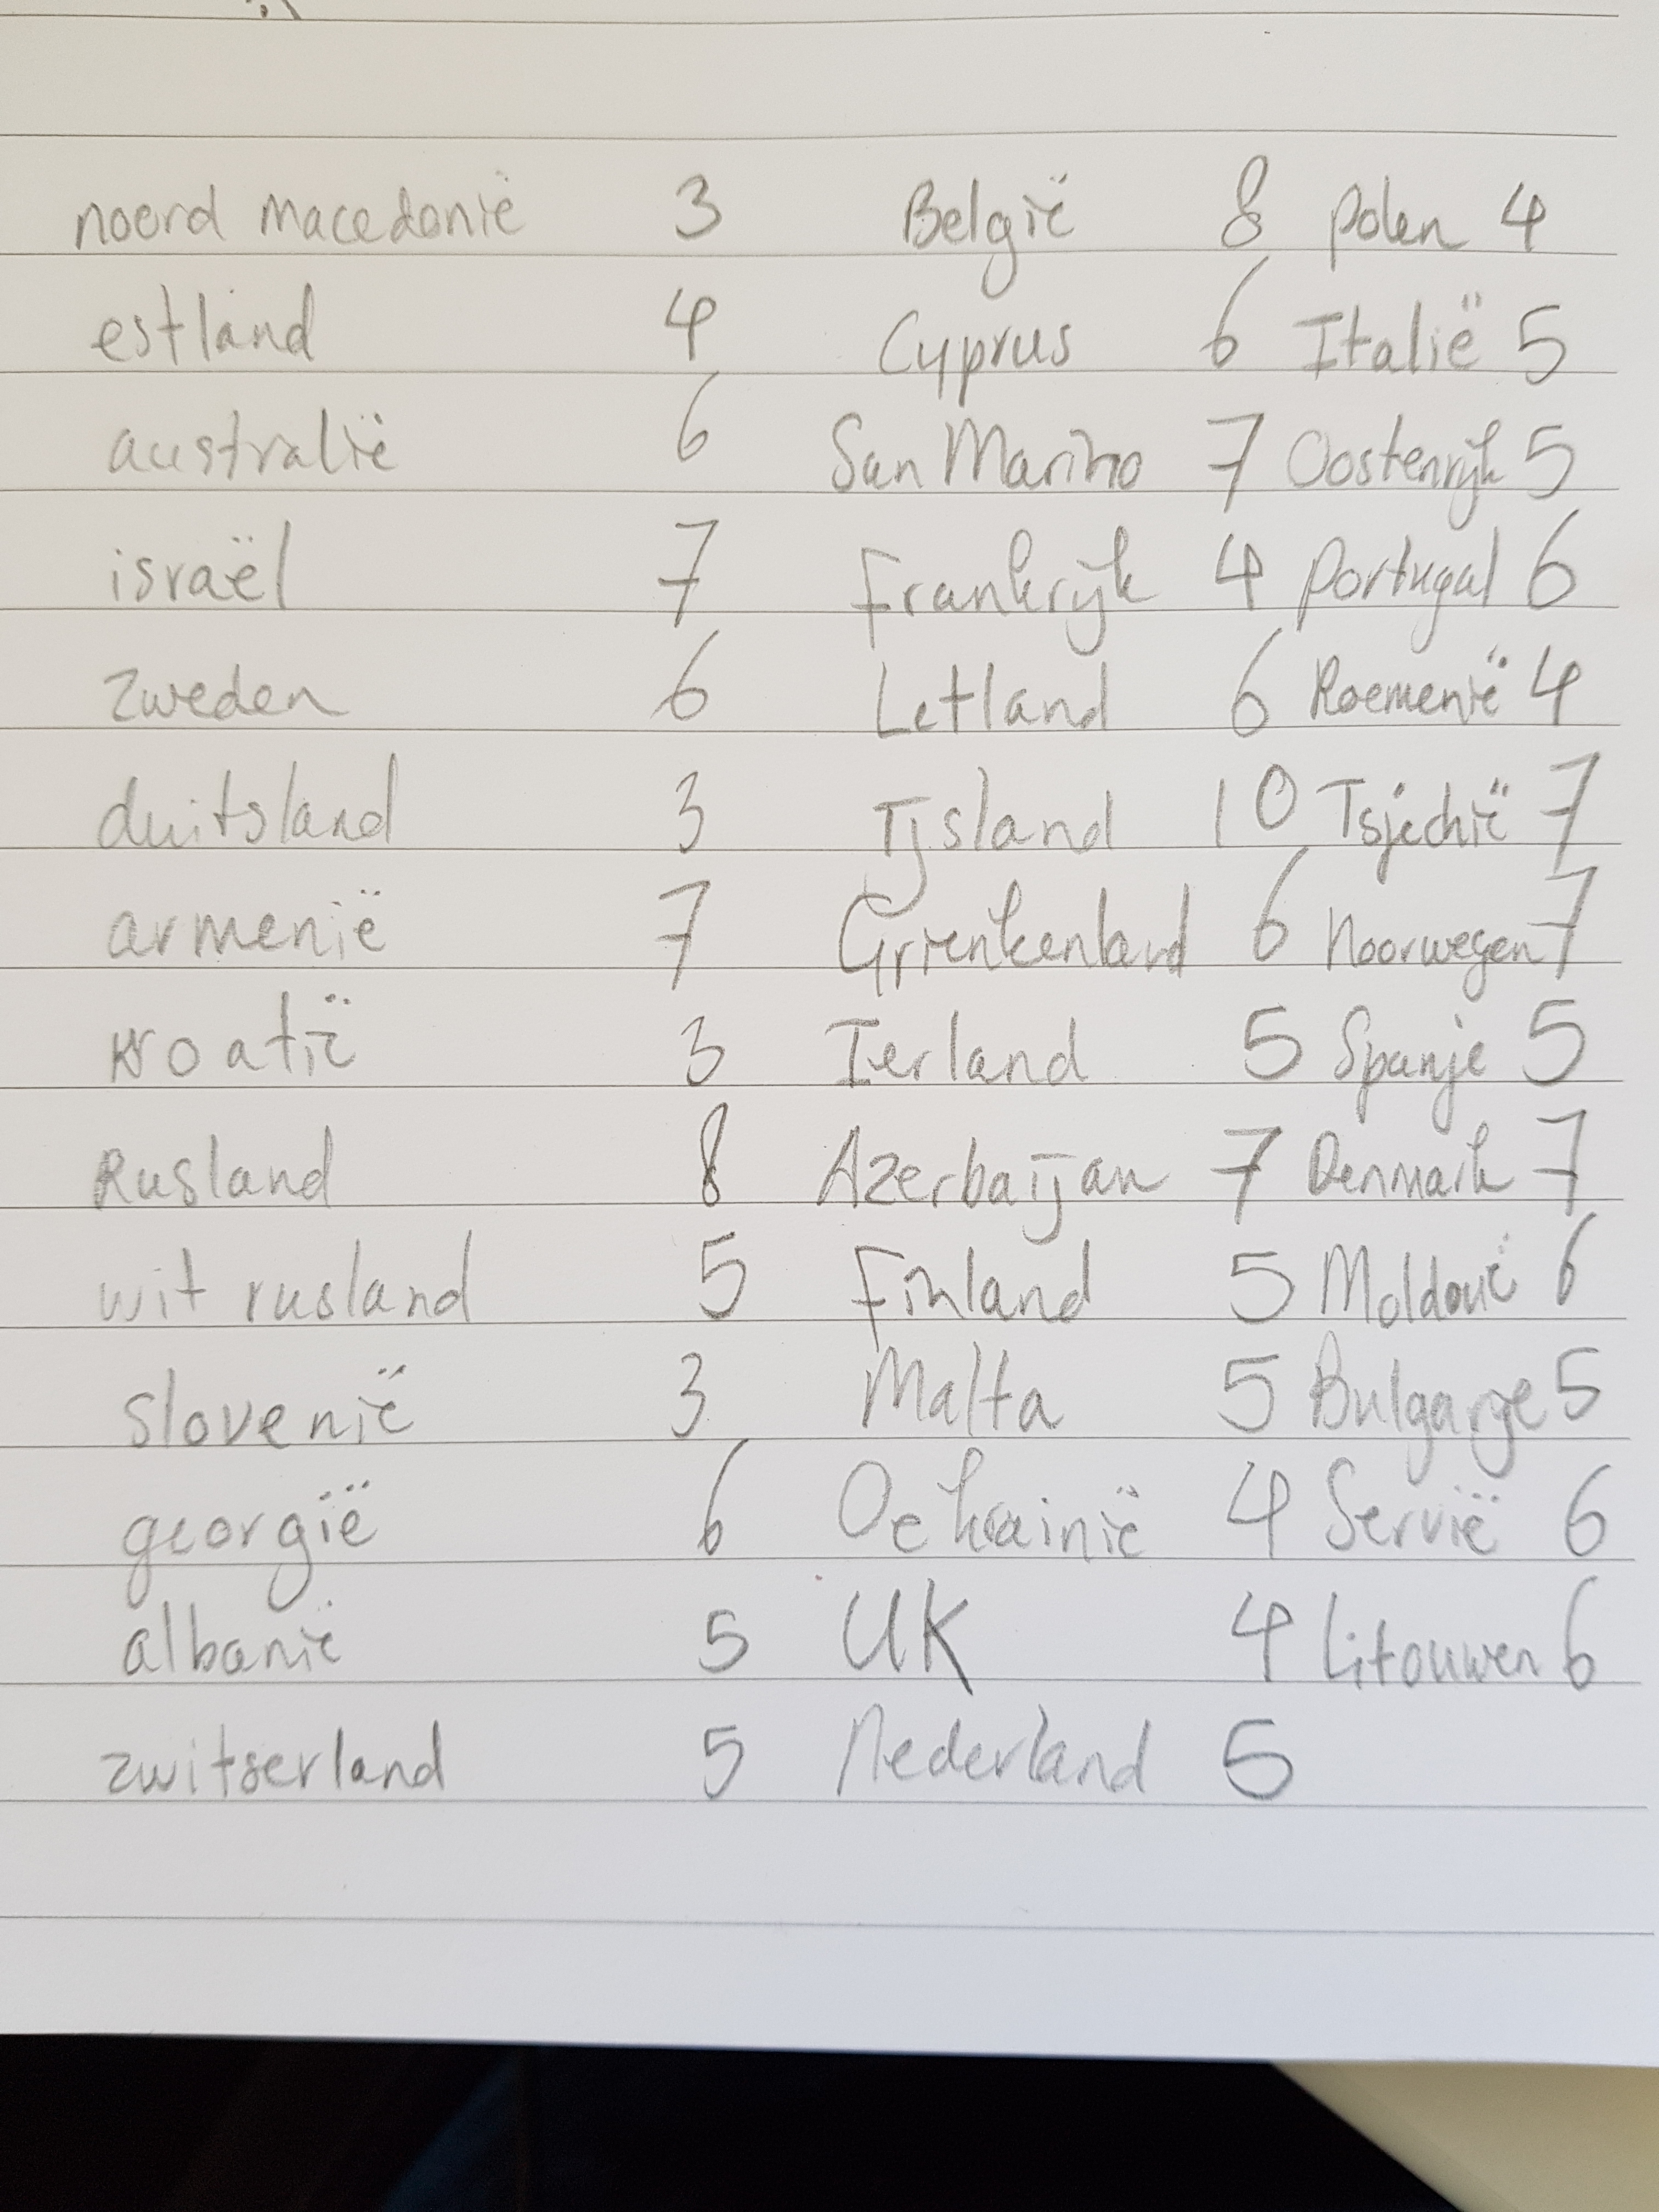 noord macedonië 3 België 8 polen 4
estland 4 Cyprus 6 Italië 5
australië 6 San Marino 7 Oostenrijk 5
israël 7 Frankrijk 4 portugal 6
zweden 6 Letland 6 Roemenië 4
duitsland 3 Ijsland 10 Tsjechië 7
armenië 7 Grienkenland 6 noorwegen 7
kroatië 3 Ierland 5 Spanje 5
Rusland 8 Azerbaijan 7 Denmark 7
wit rusland 5 Finland 5 Moldovië 6
slovenië 3 Malta 5 Bulgarije 5
georgië 6 Oekrainië 4 Servië 6
albanië 5 UK 4 Litouwen 6
zwitserland 5 Nederland 5